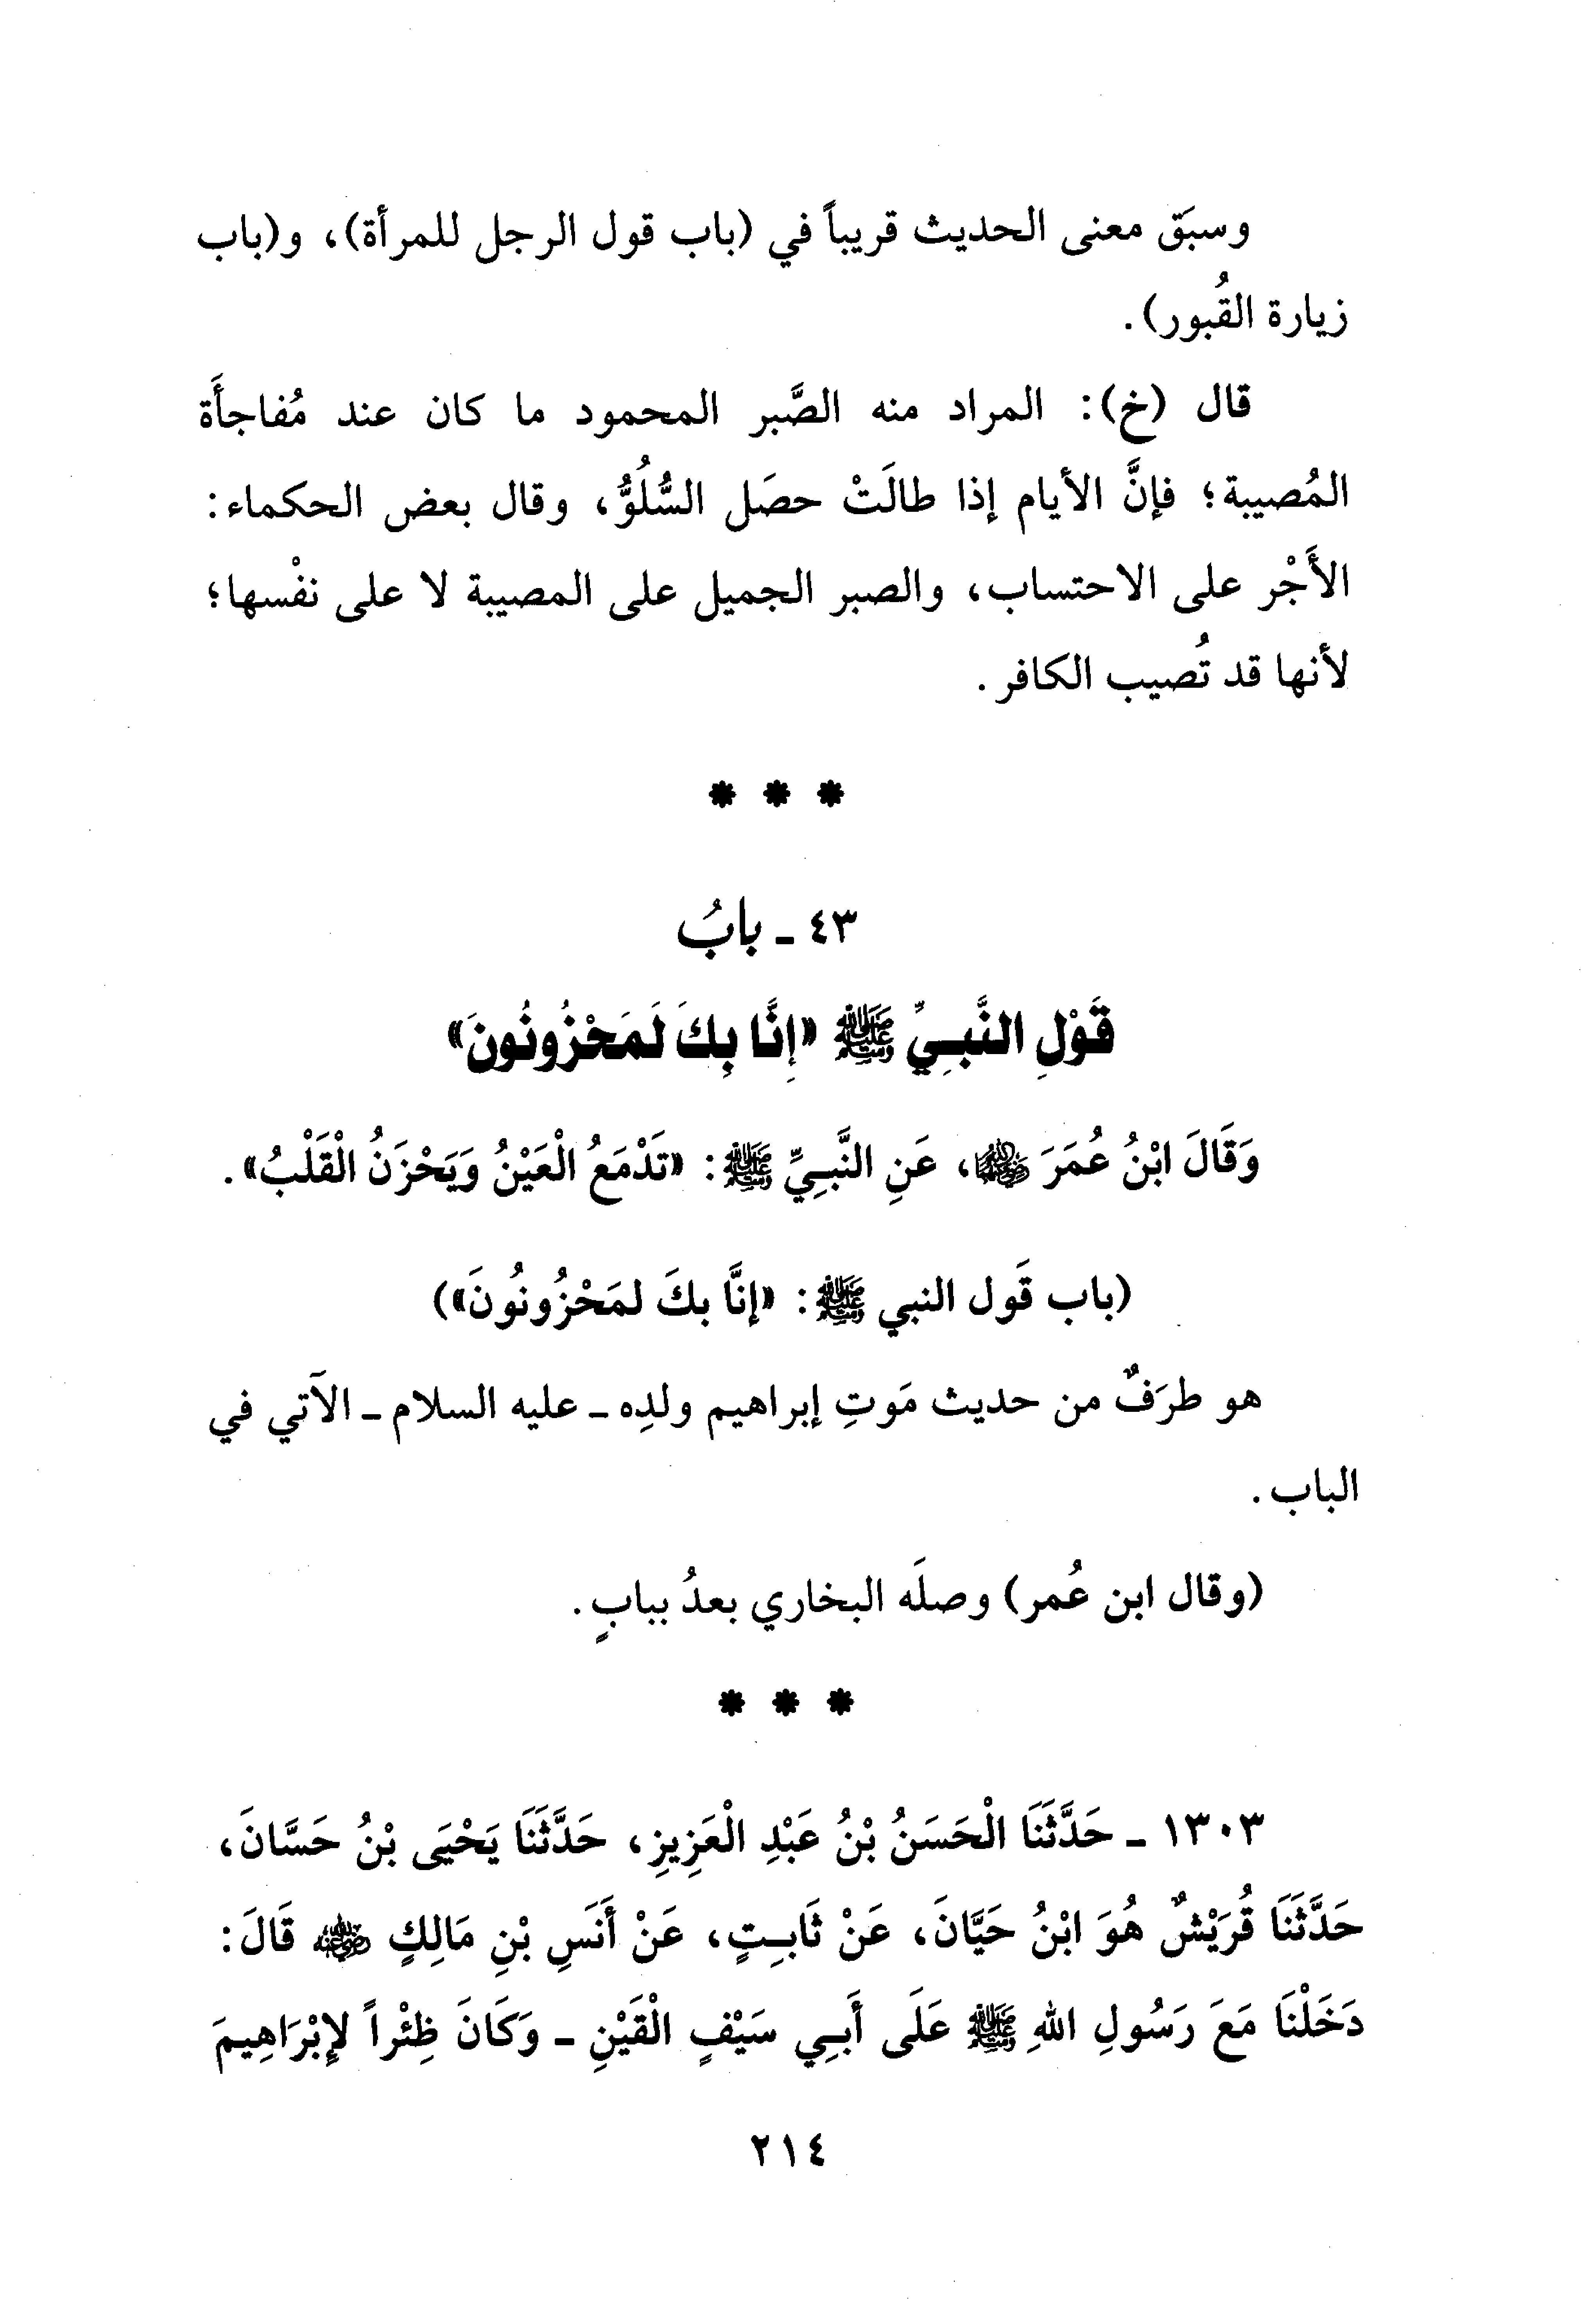 وسبَق معنى الحديث قريباً في (باب قول الرجل للمرأة)، و(باب
زيارة القُبور).
قال (خ): المراد منه الصَّبر المحمود ما كان عند مُفاجأَة
المُصيبة؛ فإنَّ الأيام إذا طالَتْ حصَل السُّلُوُّ، وقال بعض الحكماء:
الأَجْر على الاحتساب، والصبر الجميل على المصيبة لا على نفْسها؛
لأنها قد تُصيب الكافر.
* * *
٤٣ ـ بابُ
قَوْلِ النَّبِيِّ ﷺ «إِنَّا بِكَ لَمَحْزُونُونَ»
وَقَالَ ابْنُ عُمَرَ ﵄، عَنِ النَّبِيِّ ﷺ: «تَدْمَعُ الْعَيْنُ وَيَحْزَنُ الْقَلْبُ».
(باب قَول النبي ﷺ: «إنَّا بكَ لمَحْزُونُونَ»)
هو طرَفٌ من حديث مَوتِ إبراهيم ولدِه ـ عليه السلام ـ الآتي في
الباب.
(وقال ابن عُمر) وصلَه البخاري بعدُ ببابٍ.
* * *
١٣٠٣ ـ حَدَّثَنَا الْحَسَنُ بْنُ عَبْدِ الْعَزِيزِ، حَدَّثَنَا يَحْيَى بْنُ حَسَّانَ،
حَدَّثَنَا قُرَيْشٌ هُوَ ابْنُ حَيَّانَ، عَنْ ثَابِتٍ، عَنْ أَنَسِ بْنِ مَالِكٍ ﵁ قَالَ:
دَخَلْنَا مَعَ رَسُولِ اللهِ ﷺ عَلَى أَبِي سَيْفٍ الْقَيْنِ ـ وَكَانَ ظِئْراً لإِبْرَاهِيمَ
٢١٤